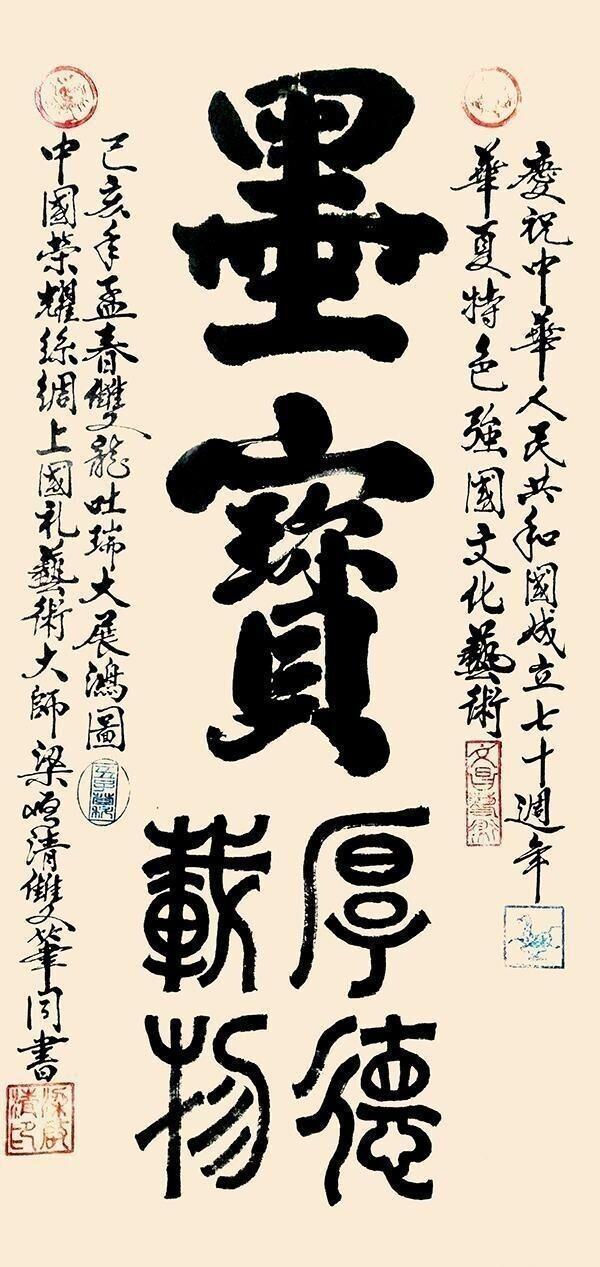 慶祝中華人民共和國成立七十週年
華夏特色強國文化藝術
墨寶
厚德
載物
己亥年孟春雙龍吐瑞大展鴻圖
中國榮耀絲綢上國礼藝術大師梁啓清雙筆同書
梁啟清印